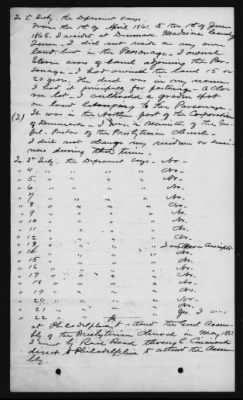 To 2" Inty. the deponent says.
From the 1st of April 1861 to the 1st of June
1865. I resided at Denmark Madison County
Tenn. I did not reside on my own
land but in the Parsonage. I owned
Eleven acres of land adjoining the Par-
sonage. I had owned the land 15 or
20 years. The land was in my name.
I had it principally for pasturage. A
on lot. I cultivated a garden spot
on land belonging to the Parsonage.
It was in the Northern part of the Corporation
of Denmark. I was, a minister of the Gos-
pel. Pastor of the Presbyterian Church.
I did not change my residence or busi-
ness during that time.
(2)
To 3" Inty. the deponent says - No -
" 4 " " " " No.
" 5 " " " " No.
" 6 " " " " No.
" 7 " " " " No.
" 8 " " " " No.
" 9 " " " " No.
" 10 " " " " No.
" 11 " " " " No.
" 12 " " " " No.
" 13 " " " " I was never conscripted
" 14 " " " " No.
" 15 " " " " No.
" 16 " " " " No.
" 17 " " " " No.
" 18 " " " " No.
" 19 " " " " No.
" 20 " " " " No.
" 21 " " " " No.
" 22 " " " " Yes I was
at Philadelphia to attend the Genl Assem-
bly of the Presbyterian Church in May 1861
I went by Rail Road through Cincinnati
direct to Philadelphia to attend the Assem-
bly.